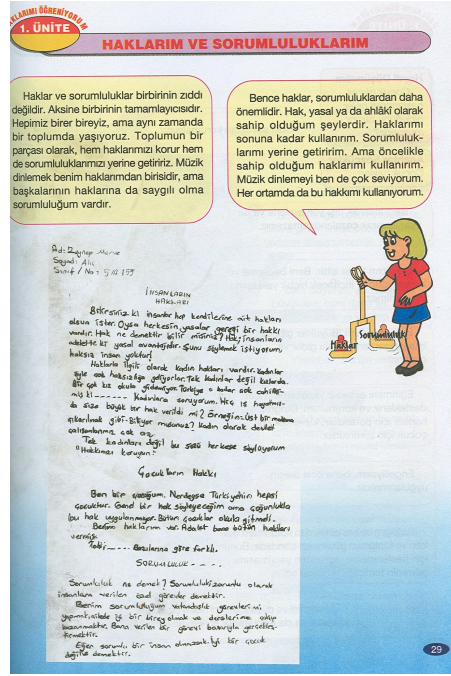 HAKLARIMI ÖĞRENİYORUM
1. ÜNİTE
HAKLARIM VE SORUMLULUKLARIM
Haklar ve sorumluluklar birbirinin zıddı
değildir. Aksine birbirinin tamamlayıcısıdır.
Hepimiz birer bireyiz, ama aynı zamanda
bir toplumda yaşıyoruz. Toplumun bir
parçası olarak, hem haklarımızı korur hem
de sorumluluklarımızı yerine getiririz. Müzik
dinlemek benim haklarımdan birisidir, ama
başkalarının haklarına da saygılı olma
sorumluluğum vardır.
Bence haklar, sorumluluklardan daha
önemlidir. Hak, yasal ya da ahlâkî olarak
sahip olduğum şeylerdir. Haklarımı
sonuna kadar kullanırım. Sorumluluk-
larımı yerine getiririm. Ama öncelikle
sahip olduğum haklarımı kullanırım.
Müzik dinlemeyi ben de çok seviyorum.
Her ortamda da bu hakkımı kullanıyorum.
Haklar
Sorumluluk
Ad: Zeynep Merve
Soyad:
Sınıf / No:
İNSANLARIN
HAKLARI
Bilirsiniz ki insanlar hep kendilerine ait hakları
olsun ister. Oysa herkesin yasalar gereği bir hakkı
vardır. Hak ne demektir bilir misiniz? Hak, insanların
adaletteki yasal avantajıdır. Şunu söylemek istiyorum,
haksız insan yoktur!
Haklarla ilgili olarak kadın hakları vardır. Kadınlar
öyle çok haksızlığa geliyorlar. Tek kadınlar değil kızlarda.
Bir çok kız okula gidemiyor. Türkiye'de
Kadınlara soruyorum. Hiç iş hayatınız-
da size büyük bir hak verildi mi? Örneğin: Üst bir makama
çıkarılmak gibi. Bitiyor mu
çalışanlarımız çok az.
Tek kadınlara değil bu sözü herkese söylüyorum
"Hakkınızı koruyun."
Çocukların Hakkı
Ben bir çocuğum. Nerdeyse Türkiye'nin hepsi
çocuktur. Genel bir hak söyleyeceğim ama çoğunlukla
bu hak uygulanmıyor. Bütün çocuklar okula gitmeli.
Benim haklarım var. Adalet bana bütün hakları
vermiş.
Tabi ---- Bazılarına göre farklı.
SORUMLULUK - - - -
Sorumluluk ne demek? Sorumluluk: zorunlu olarak
insanlara verilen özel görevler demektir.
Benim sorumluluğum vatandaşlık görevlerimi
yapmak, ailede iyi bir birey olmak ve derslerime çalışıp
kazanmaktır. Bana verilen bir görevi başarıyla gerçekleş-
tirmektir.
Eğer sorumlu bir insan olmazsak iyi bir çocuk
değiliz demektir.
29